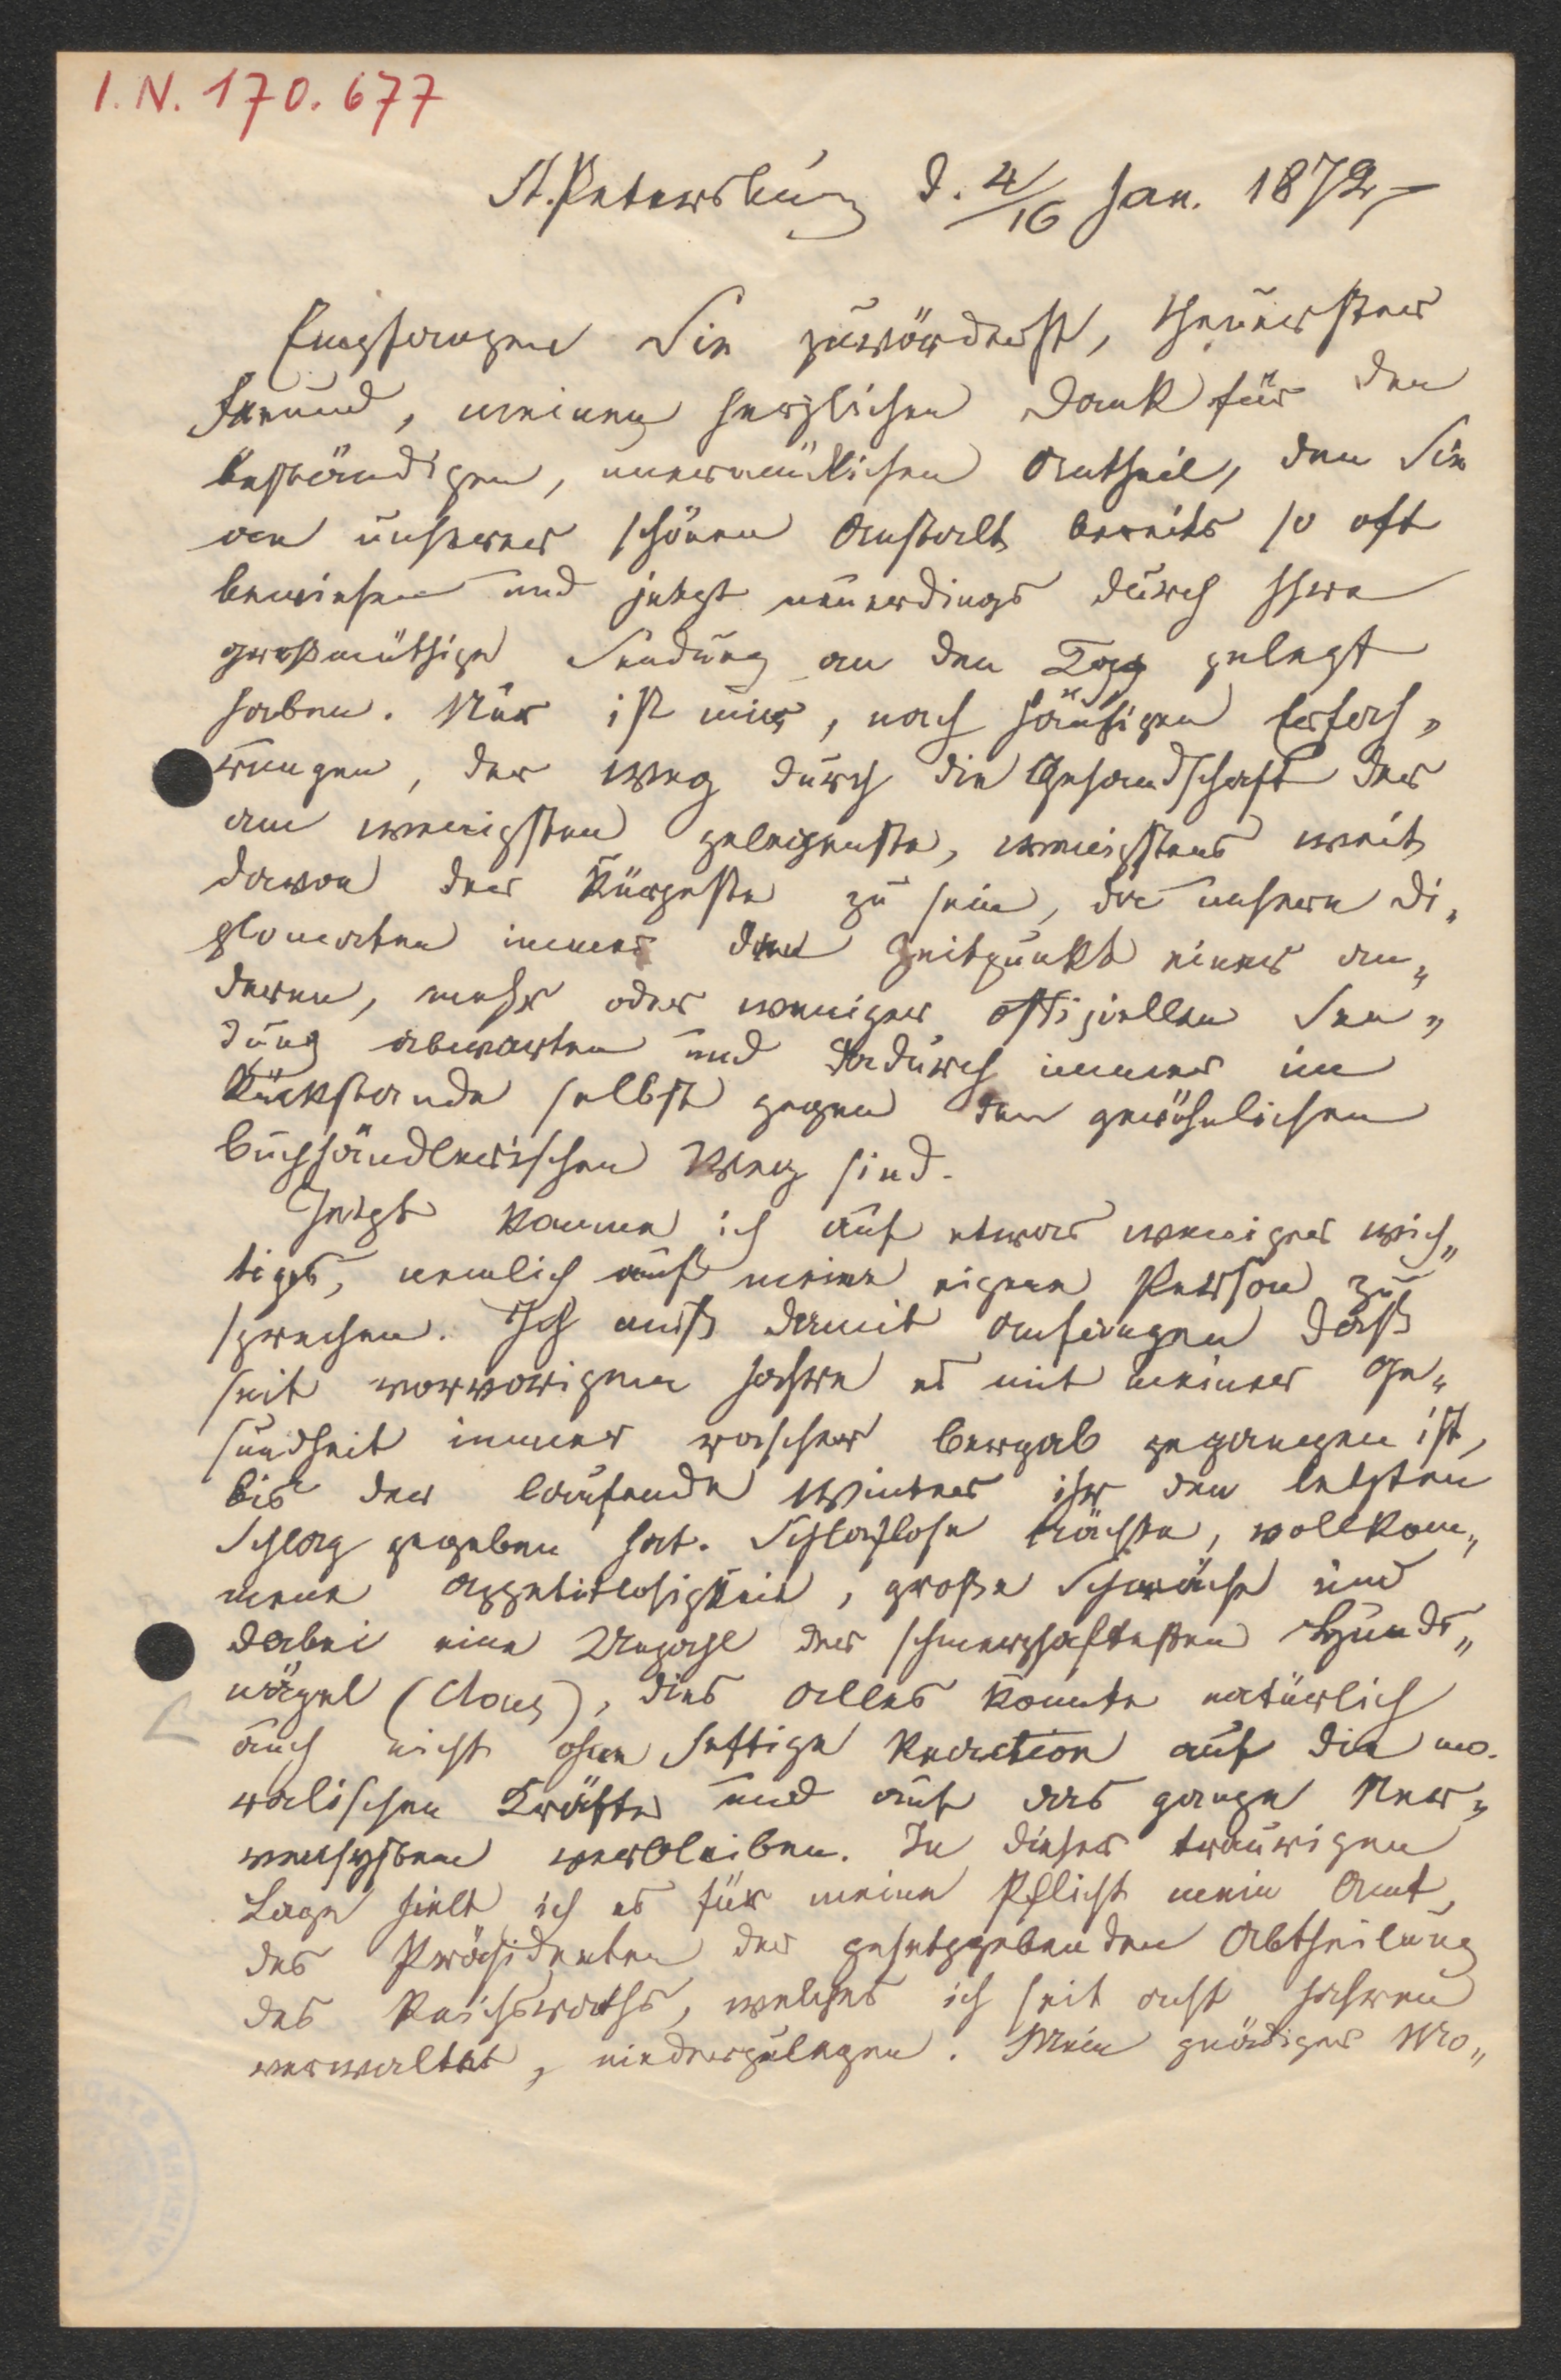 I.N. 170.677
St. Petersburg d. 4/16 Jan. 1872,
Empfangen Sie zuvörderst, theuerster
Freund, meinen herzlichen Dank für den
beständigen, unermüdlichen Antheil, den Sie
an unserer schönen Anstalt bereits so oft
bewiesen und jetzt neuerdings durch Ihre
großmüthige Sendung an den Tag gelegt
haben. Nur ist mir, nach häufigen Erfah„
rungen, der Weg durch die Gesandschaft der
am wenigsten gelegenste, wenigstens weit
davon der Kürzeste zu sein, da unsere Di„
plomaten immer den Zeitpunkt einer an„
deren, mehr oder weniger offiziellen Sen„
dung abwarten und dadurch immer im
Rückstande selbst gegen den gewöhnlichen
buchhändlerischen Weg sind.
Jetzt komme ich auf etwas weniger wich„
tiges, nemlich auf meine eigene Person zu
sprechen. Ich muß damit anfangen daß
seit vorvorigem Jahre es mit meiner Ge„
sundheit immer rascher bergab gegangen ist,
bis der laufende Winter ihr den letzten
Schlag gegeben hat. Schlaflose Nächte, vollkom„
mene Appetitlosigkeit, große Schwäche und
dabei eine Unzahl der schmerzhaftesten Hunds„
nägel (clous), dies alles konnte natürlich
auch nicht ohne heftige Reaction auf die mo„
ralischen Kräfte und auf das ganze Ner„
vensystem verbleiben. In dieser traurigen
Lage hielt ich es für meine Pflicht mein Amt,
des Präsidenten der gesetzgebenden Abtheilung
des Reichsraths, welches ich seit acht Jahren
verwaltet, niederzulegen. Mein gnädiger Mo„